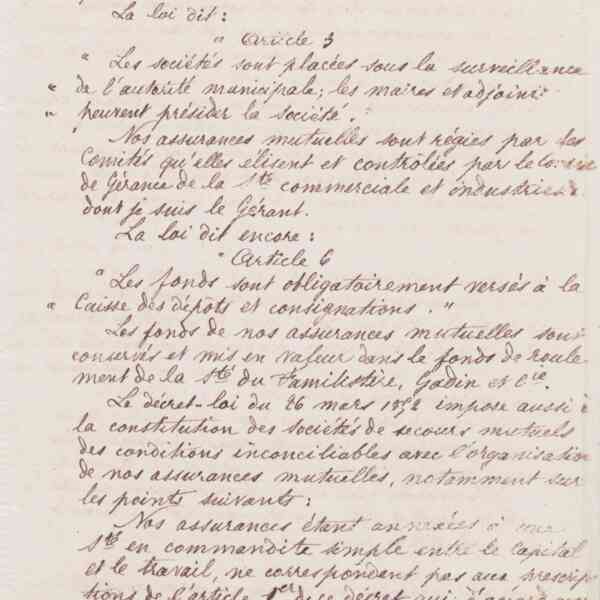 La loi dit :
" Article 3
" Les sociétés sont placées sous la surveillance
" de l'autorité municipale ; les maires et adjoints
" peuvent présider la société.
Nos assurances mutuelles sont régies par des
Comités qu'elles élisent et contrôlées par le
de Gérance de la Sté commerciale et industrielle
dont je suis le Gérant.
La loi dit encore :
" Article 6
" Les fonds sont obligatoirement versés à la
" Caisse des dépots et consignations. "
Les fonds de nos assurances mutuelles sont
conservés et mis en valeur dans le fonds de roule
ment de la Sté du Familistère, Godin et Cie.
Le décret-loi du 26 mars 1852 impose aussi à
la constitution des sociétés de secours mutuels
des conditions inconciliables avec l'organisation
de nos assurances mutuelles, notamment sur
les points suivants :
Nos assurances étant annexées à une
Sté en commandite simple entre le Capital
et le travail, ne correspondent pas aux prescrip
tions de l'article 1er de ce décret qui, d'